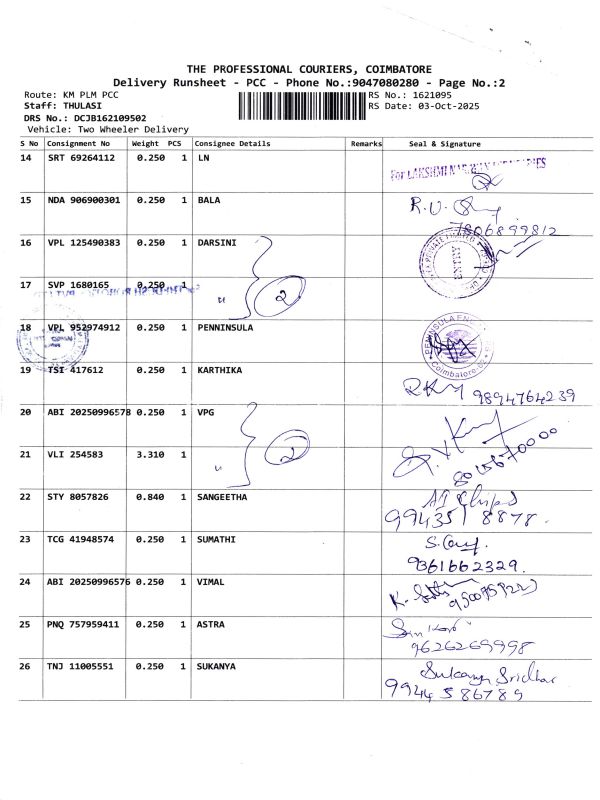 THE PROFESSIONAL COURIERS, COIMBATORE
Delivery Runsheet - PCC - Phone No.:9047080280 - Page No.:2
Route: KM PLM PCC RS No.: 1621095
Staff: THULASI RS Date: 03-Oct-2025
DRS No.: DCJB162109502
Vehicle: Two Wheeler Delivery
S No Consignment No Weight PCS Consignee Details Remarks Seal & Signature
14 SRT 69264112 0.250 1 LN
For LAKSHMI
15 NDA 906900301 0.250 1 BALA
7806899812
16 VPL 125490383 0.250 1 DARSINI
17 SVP 1680165 0.250 1 " 2
18 VPL 952974912 0.250 1 PENNINSULA
Coimbatore
19 TSI 417612 0.250 1 KARTHIKA
9894764239
20 ABI 20250996578 0.250 1 VPG
21 VLI 254583 3.310 1 " 2
22 STY 8057826 0.840 1 SANGEETHA
AJ Chips
994351 8878
23 TCG 41948574 0.250 1 SUMATHI
9361662329
24 ABI 20250996576 0.250 1 VIMAL
25 PNQ 757959411 0.250 1 ASTRA
9626269998
26 TNJ 11005551 0.250 1 SUKANYA
Sukanya Sridhar
9944586789